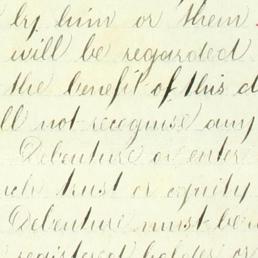 by him or them
will be regarded
the benefit of this d
ll not recognise any
Debenture or enter
ch trust or equity
Debenture must be
registered holder or